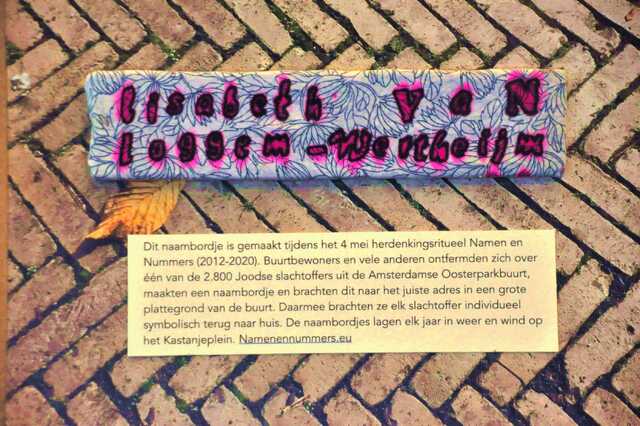 Elisabeth van
Loggem-Wertheijm
Dit naambordje is gemaakt tijdens het 4 mei herdenkingsritueel Namen en
Nummers (2012-2020). Buurtbewoners en vele anderen ontfermden zich over
één van de 2.800 Joodse slachtoffers uit de Amsterdamse Oosterparkbuurt,
maakten een naambordje en brachten dit naar het juiste adres in een grote
plattegrond van de buurt. Daarmee brachten ze elk slachtoffer individueel
symbolisch terug naar huis. De naambordjes lagen elk jaar in weer en wind op
het Kastanjeplein. Namenennummers.eu